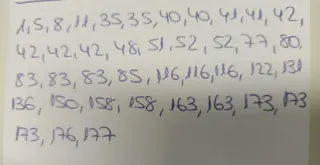 1, 5, 8, 11, 35, 35, 40, 40, 41, 41, 42,
42, 42, 42, 48, 51, 52, 52, 77, 80,
83, 83, 83, 85, 116, 116, 116, 122, 131
136, 150, 158, 158, 163, 163, 173, 173
173, 176, 177